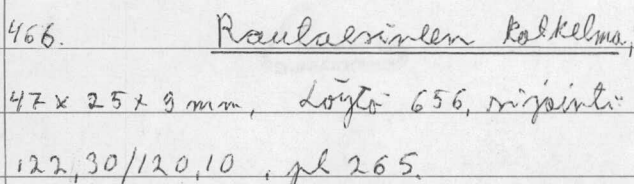 466. Rautaesineen katkelma,
47 x 25 x 9 mm, Löytö 656, sijainti
122,30/120,10, pl 265.